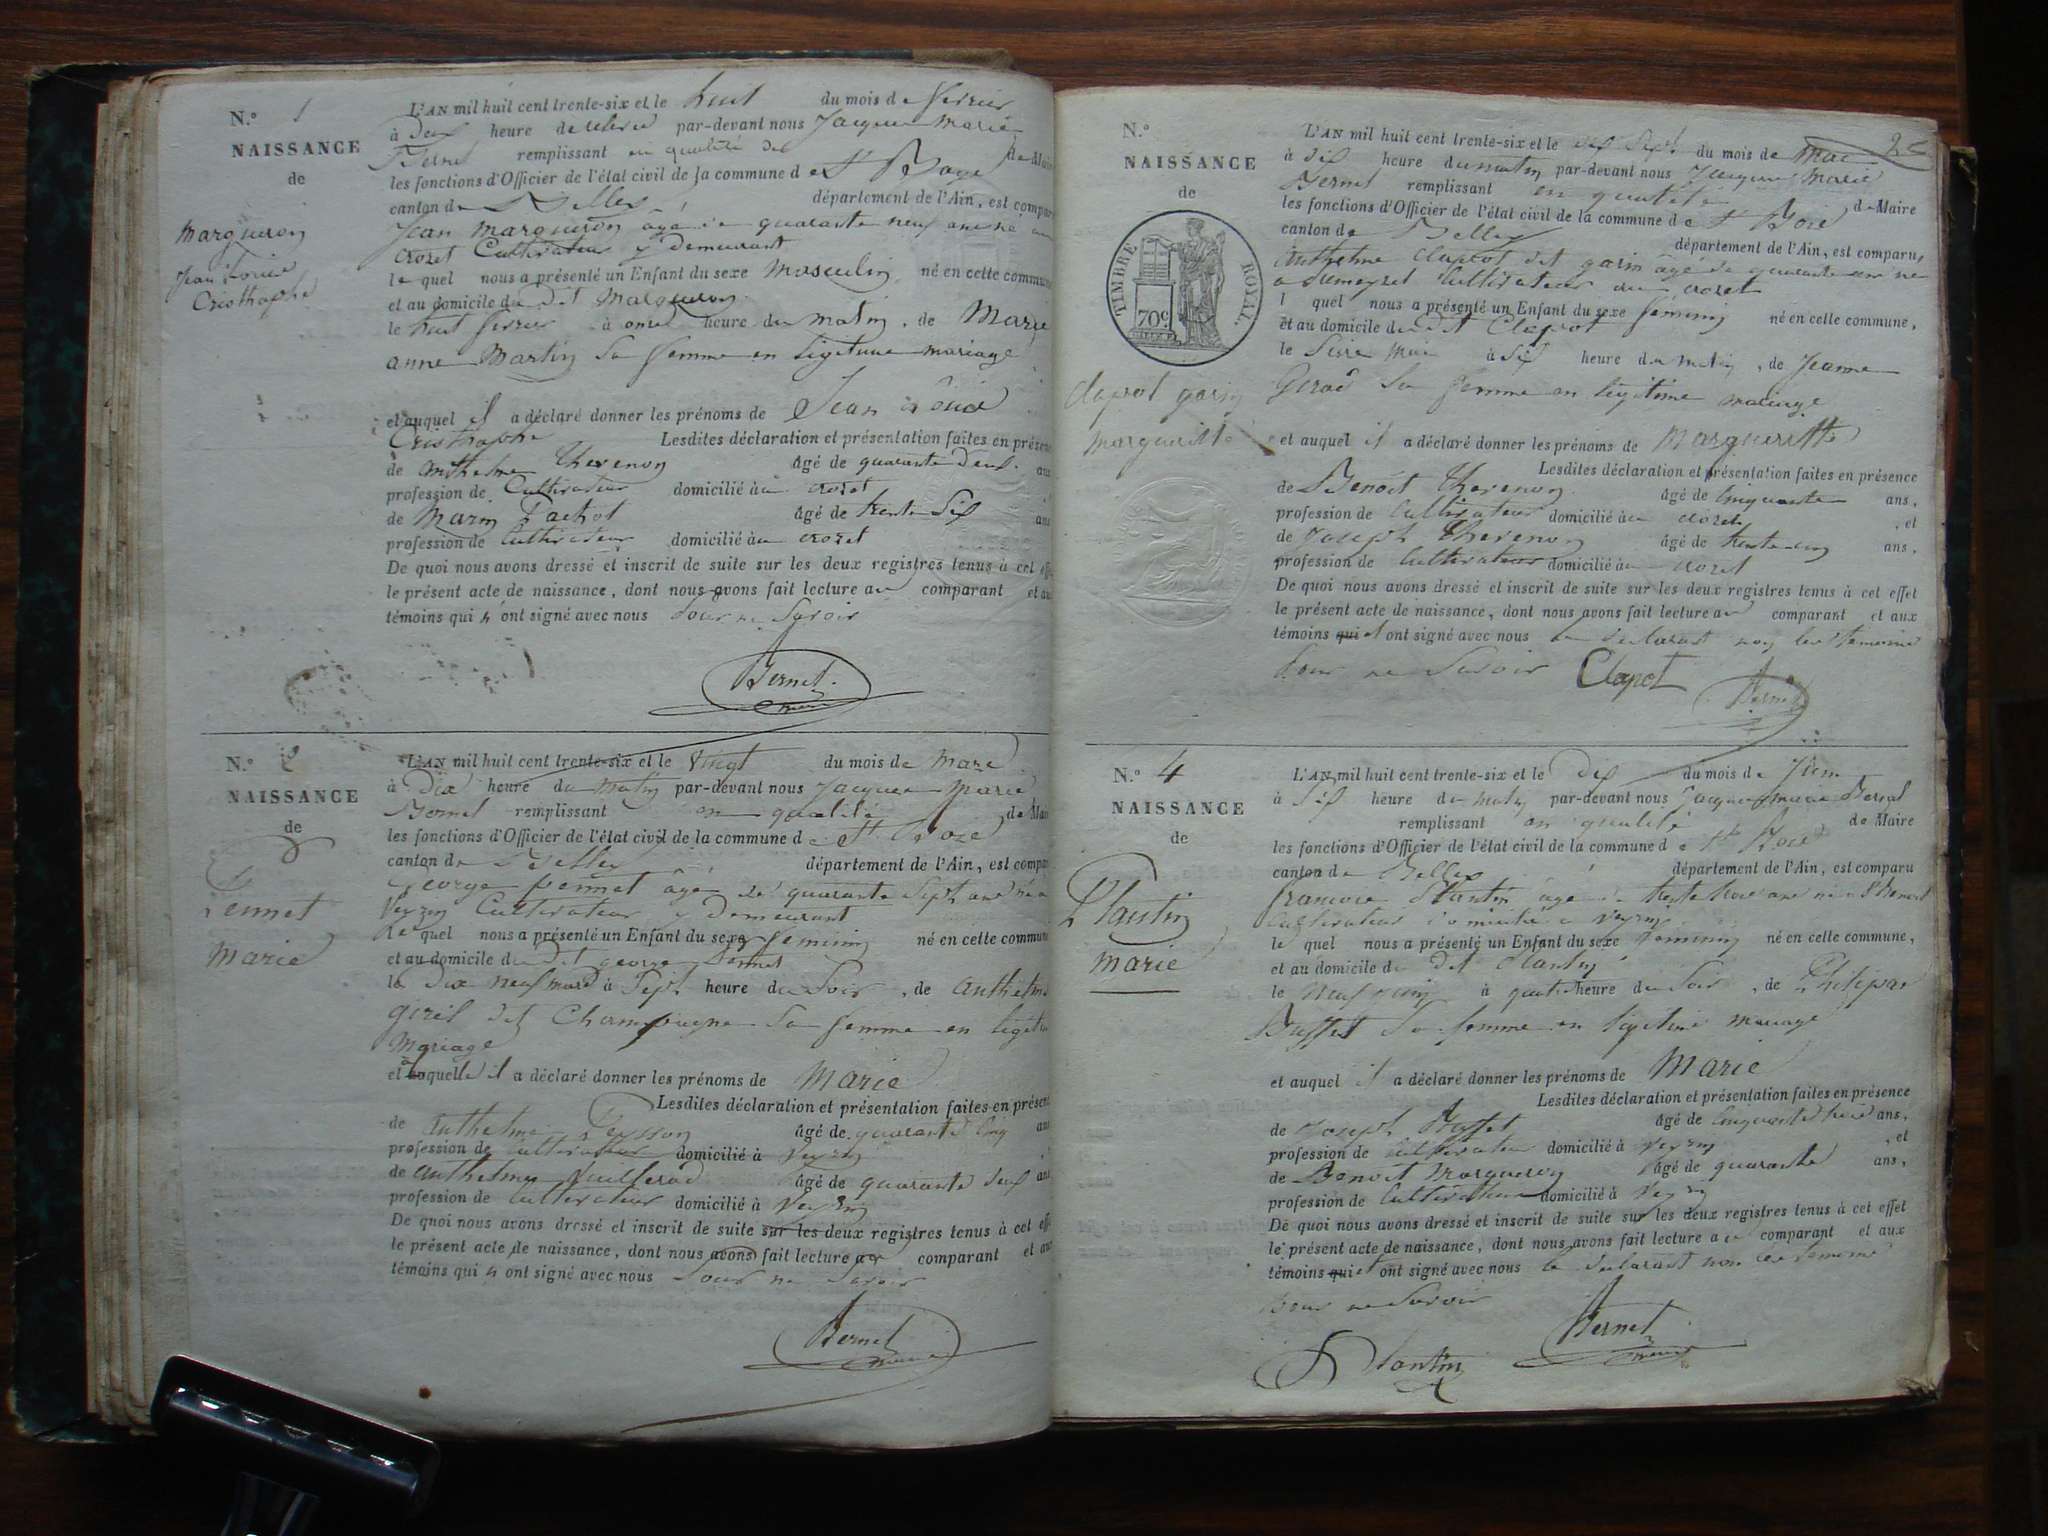 N.º 1
NAISSANCE
de
Margueron
Jean Louis
Cristhophe
L'AN mil huit cent trente-six et le huit du mois de ferrier
à Deux heure de par-devant nous Jacques Marie
Bernet remplissant en qualité de Maire
les fonctions d'Officier de l'état civil de la commune de St Bois
canton de Belley département de l'Ain, est compar
Jean Margueron âgé de quarante neuf ans né au
crozet Cultivateur y demeurant
le quel nous a présenté un Enfant du sexe Masculin né en cette commune
et au domicile du dit Margueron
le huit ferrier à onze heure du matin, de Marie
anne Martin Sa femme en Ligitime mariage
et auquel il a déclaré donner les prénoms de Jean
Cristhophe Lesdites déclaration et présentation faites en présen
de Anthelme Thevenon âgé de quarante Deux ans
profession de Cultivateur domicilié au crozet
de Marin Pachot âgé de trente Six ans
profession de Cultivateur domicilié au crozet
De quoi nous avons dressé et inscrit de suite sur les deux registres tenus à cet effe
le présent acte de naissance, dont nous avons fait lecture au comparant et au
témoins qui n ont signé avec nous Pour ne Savoir
Bernet
maire
N.º 2
NAISSANCE
de
Pennet
Marie
L'AN mil huit cent trente-six et le Vingt du mois de Mars
à Dix heure du Matin par-devant nous Jacques Marie
Bernet remplissant en qualité de Mai
les fonctions d'Officier de l'état civil de la commune de St Bois
canton de Belley département de l'Ain, est compar
George Pennet âgé de quarante Sept ans né a
Veyrin Cultivateur y demeurant
Le quel nous a présenté un Enfant du sexe feminin né en cette commune
et au domicile du dit george Pennet
le Dix neuf mars à Sept heure du Soir, de Anthelme
dit Champagne Sa femme en legiti
Mariage
et auquelle il a déclaré donner les prénoms de Marie
Lesdites déclaration et présentation faites en présen
de Anthelme Peysson âgé de quarante Cinq ans
profession de Cultivateur domicilié à Veyrin
de anthelme Vuillerod âgé de quarante deux ans
profession de Cultivateur domicilié à Veyrin
De quoi nous avons dressé et inscrit de suite sur les deux registres tenus à cet effe
le présent acte de naissance, dont nous avons fait lecture au comparant et aux
témoins qui n ont signé avec nous Pour ne Savoir
Bernet
maire
2e
N.º
NAISSANCE
de
TIMBRE ROYAL.
70c
Clapot garin
Marguerite
L'AN mil huit cent trente-six et le dix Sept du mois de Mai
à Six heure du matin par-devant nous Jacques Marie
Bernet remplissant en qualité de Maire
les fonctions d'Officier de l'état civil de la commune de St Bois
canton de Belley département de l'Ain, est comparu,
Anthelme Clapot dit garin âgé de quarante ans né
a Cultivateur au crozet
l quel nous a présenté un Enfant du sexe féminin né en cette commune,
et au domicile du dit Clapot
le Seize Mai à Six heure du matin, de Jeanne
Sa femme en legitime mariage
et auquel il a déclaré donner les prénoms de Margueritte
Lesdites déclaration et présentation faites en présence
de Benoit Thevenon âgé de Cinquante ans,
profession de Cultivateur domicilié au crozet, et
de Joseph Thevenon âgé de trente cinq ans,
profession de Cultivateur domicilié au crozet
De quoi nous avons dressé et inscrit de suite sur les deux registres tenus à cet effet
le présent acte de naissance, dont nous avons fait lecture au comparant et aux
témoins qui et ont signé avec nous le declarant non les temoins
Pour ne Savoir Clapot
Bernet
N.º 4
NAISSANCE
de
Plantin
Marie
L'AN mil huit cent trente-six et le Dix du mois de Juin
à Six heure du matin par-devant nous Jacques Marie Bernet
remplissant en qualité de Maire
les fonctions d'Officier de l'état civil de la commune de St Bois
canton de Belley département de l'Ain, est comparu
francois Plantin âgé de trente trois ans né a St Benoit
Cultivateur domicilié a Veyrin
le quel nous a présenté un Enfant du sexe féminin né en cette commune,
et au domicile du dit Plantin
le Neuf Juin à quatre heure du Soir, de
Buffet Sa femme en Legitime mariage
et auquel il a déclaré donner les prénoms de Marie
Lesdites déclaration et présentation faites en présence
de Joseph Buffet âgé de Cinquante trois ans,
profession de Cultivateur domicilié à Veyrin, et
de Benoit Margueron âgé de quarante ans,
profession de Cultivateur domicilié à Veyrin
De quoi nous avons dressé et inscrit de suite sur les deux registres tenus à cet effet
le présent acte de naissance, dont nous avons fait lecture au comparant et aux
témoins qui et ont signé avec nous le declarant non les temoins
Pour ne Savoir
Bernet
maire
Plantin